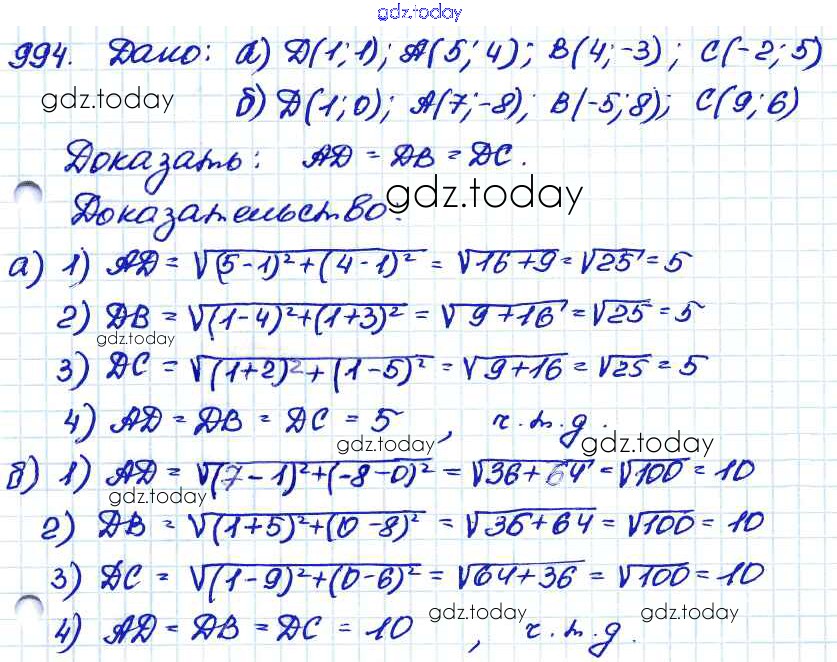 gdz.today
994. Дано: а) D(1; 1); A(5; 4); B(4; -3); C(-2; 5)
gdz.today б) D(1; 0); A(7; -8); B(-5; 8); C(9; 6)
Доказать: AD = DB = DC.
gdz.today
Доказательство:
а) 1) AD = √(5-1)²+(4-1)² = √16+9 = √25 = 5
2) DB = √(1-4)²+(1+3)² = √9+16 = √25 = 5
gdz.today
3) DC = √(1+2)²+(1-5)² = √9+16 = √25 = 5
4) AD = DB = DC = 5, ч.т.д.
gdz.today gdz.today
б) 1) AD = √(7-1)²+(-8-0)² = √36+64 = √100 = 10
gdz.today
2) DB = √(1+5)²+(0-8)² = √36+64 = √100 = 10
3) DC = √(1-9)²+(0-6)² = √64+36 = √100 = 10
gdz.today gdz.today
4) AD = DB = DC = 10, ч.т.д.